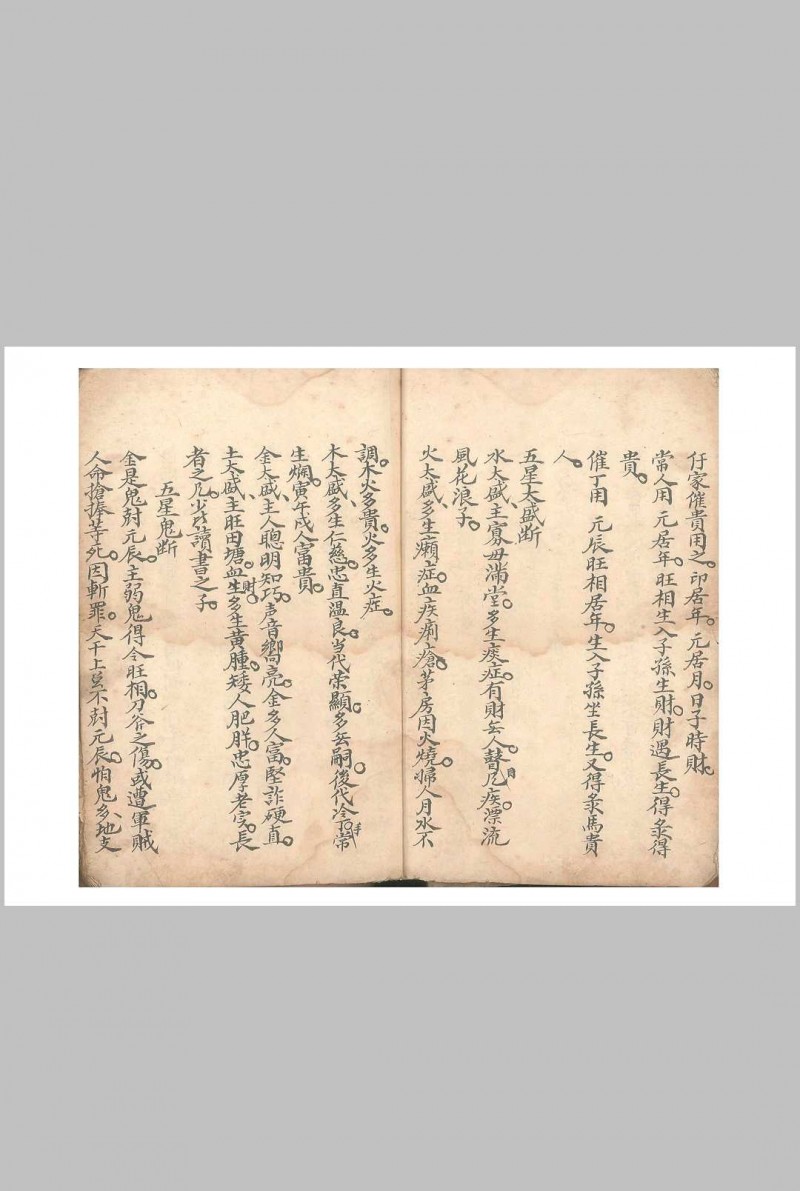 仔家催貴用之。印居年。元居月。日子時財。
當人用　元居年。旺相生入子孫生財。財遇長生。得彔得
貴。
催丁用　元辰旺相居年。生入子孫坐長生。又得彔馬貴
人。
五星太盛断
水太盛、主寡毋满堂。多生痰症。有財無人。瞽目疾。漂流
風花浪子。
火太盛、多生癩症。血疾痢瘡。茅房因火燒。婦人月水不
調。木火多貴。火多生火症。
木太盛、多生仁慈。忠直温良。当代荣顯。多無嗣。後代冷丁。常
生烟。寅午戍人富貴。
金太盛、主人聰明知巧。声音嚮亮。金多人富。堅詐硬直。
土太盛、主旺田塘。血財。多生黄腫。矮人肥胖。忠厚老实。長
者之凢。少生讀書之子。
五星鬼断
金是鬼尅元辰。主弱鬼得令旺相。刀斧之傷。或遭軍賊
人命搶捧等死。因斬罪。天干上显不尅元辰。怕鬼多、地支